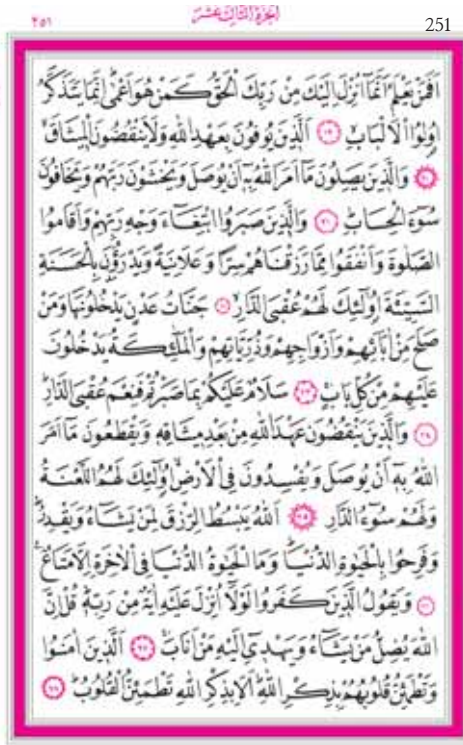 ٢٥١ الجزء الثالث عشر 251
اَفَمَنْ يَعْلَمُ اَنَّمَٓا اُنْزِلَ اِلَيْكَ مِنْ رَبِّكَ الْحَقُّ كَمَنْ هُوَ اَعْمٰى اِنَّمَا يَتَذَكَّرُ
اُو۬لُوا الْاَلْبَابِ ﴿١٩﴾ اَلَّذٖينَ يُوفُونَ بِعَهْدِ اللّٰهِ وَلَا يَنْقُضُونَ الْمٖيثَاقَ
﴿٢٠﴾ وَالَّذٖينَ يَصِلُونَ مَٓا اَمَرَ اللّٰهُ بِهٖٓ اَنْ يُوصَلَ وَيَخْشَوْنَ رَبَّهُمْ وَيَخَافُونَ
سُٓوءَ الْحِسَابِ ﴿٢١﴾ وَالَّذٖينَ صَبَرُوا ابْتِغَٓاءَ وَجْهِ رَبِّهِمْ وَاَقَامُوا
الصَّلٰوةَ وَاَنْفَقُوا مِمَّا رَزَقْنَاهُمْ سِرًّا وَعَلَانِيَةً وَيَدْرَؤُ۫نَ بِالْحَسَنَةِ
السَّيِّئَةَ اُو۬لٰٓئِكَ لَهُمْ عُقْبَى الدَّارِ ﴿٢٢﴾ جَنَّاتُ عَدْنٍ يَدْخُلُونَهَا وَمَنْ
صَلَحَ مِنْ اٰبَٓائِهِمْ وَاَزْوَاجِهِمْ وَذُرِّيَّاتِهِمْ وَالْمَلٰٓئِكَةُ يَدْخُلُونَ
عَلَيْهِمْ مِنْ كُلِّ بَابٍ ﴿٢٣﴾ سَلَامٌ عَلَيْكُمْ بِمَا صَبَرْتُمْ فَنِعْمَ عُقْبَى الدَّارِ
﴿٢٤﴾ وَالَّذٖينَ يَنْقُضُونَ عَهْدَ اللّٰهِ مِنْ بَعْدِ مٖيثَاقِهٖ وَيَقْطَعُونَ مَٓا اَمَرَ
اللّٰهُ بِهٖٓ اَنْ يُوصَلَ وَيُفْسِدُونَ فِي الْاَرْضِ اُو۬لٰٓئِكَ لَهُمُ اللَّعْنَةُ
وَلَهُمْ سُٓوءُ الدَّارِ ﴿٢٥﴾ اَللّٰهُ يَبْسُطُ الرِّزْقَ لِمَنْ يَشَٓاءُ وَيَقْدِرُ
وَفَرِحُوا بِالْحَيٰوةِ الدُّنْيَا وَمَا الْحَيٰوةُ الدُّنْيَا فِي الْاٰخِرَةِ اِلَّا مَتَاعٌ
﴿٢٦﴾ وَيَقُولُ الَّذٖينَ كَفَرُوا لَوْلَٓا اُنْزِلَ عَلَيْهِ اٰيَةٌ مِنْ رَبِّهٖ قُلْ اِنَّ
اللّٰهَ يُضِلُّ مَنْ يَشَٓاءُ وَيَهْدٖٓي اِلَيْهِ مَنْ اَنَابَ ﴿٢٧﴾ اَلَّذٖينَ اٰمَنُوا
وَتَطْمَئِنُّ قُلُوبُهُمْ بِذِكْرِ اللّٰهِ اَلَا بِذِكْرِ اللّٰهِ تَطْمَئِنُّ الْقُلُوبُ ﴿٢٨﴾